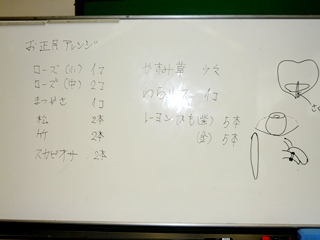 お正月アレンジ
ローズ(小) 1コ
ローズ(中) 2コ
まつかさ 1コ
松 2本
竹 2本
スカビオサ 2本
かすみ草 少々
1コ
レーヨンひも(紫) 5本
(金) 5本